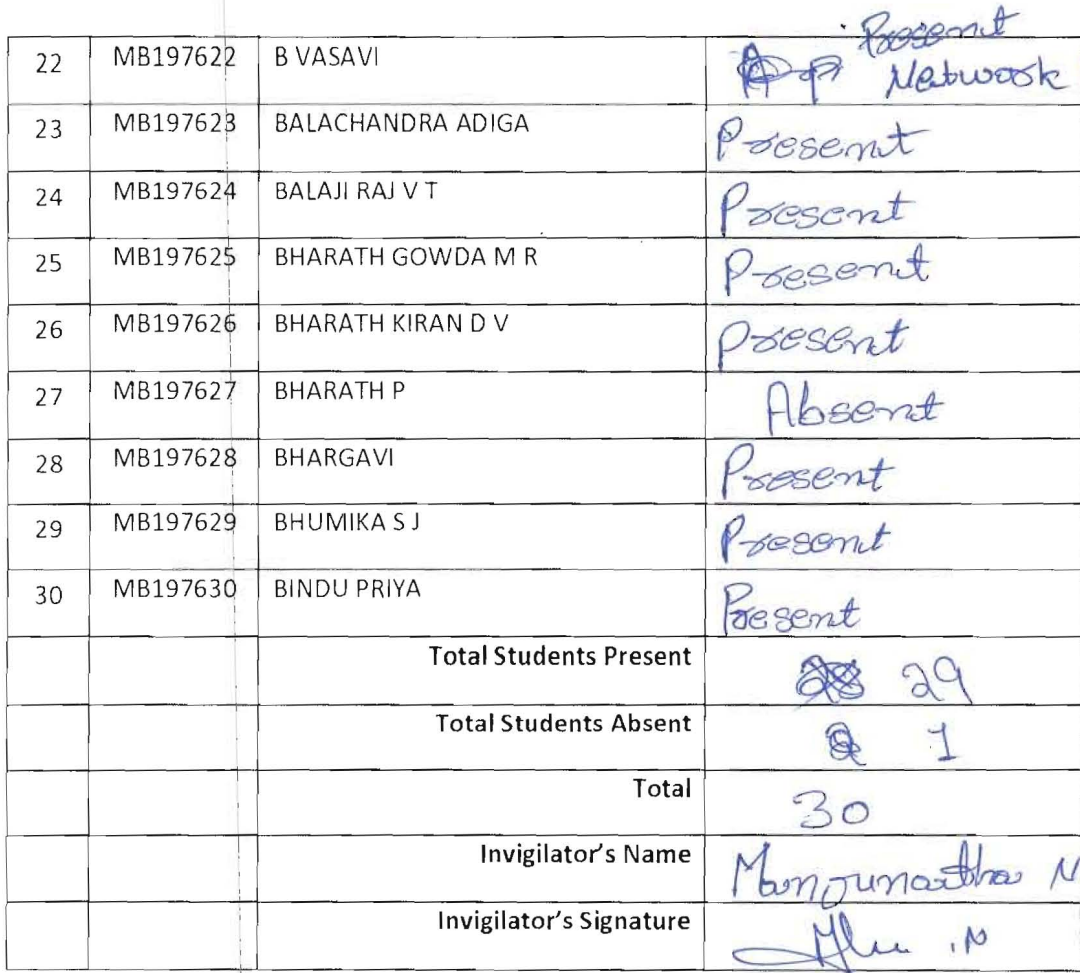 Present
22 MB197622 B VASAVI Network
23 MB197623 BALACHANDRA ADIGA Present
24 MB197624 BALAJI RAJ V T Present
25 MB197625 BHARATH GOWDA M R Present
26 MB197626 BHARATH KIRAN D V Present
27 MB197627 BHARATH P Absent
28 MB197628 BHARGAVI Present
29 MB197629 BHUMIKA S J Present
30 MB197630 BINDU PRIYA Present
Total Students Present 29
Total Students Absent 1
Total 30
Invigilator's Name Manjunatha N
Invigilator's Signature